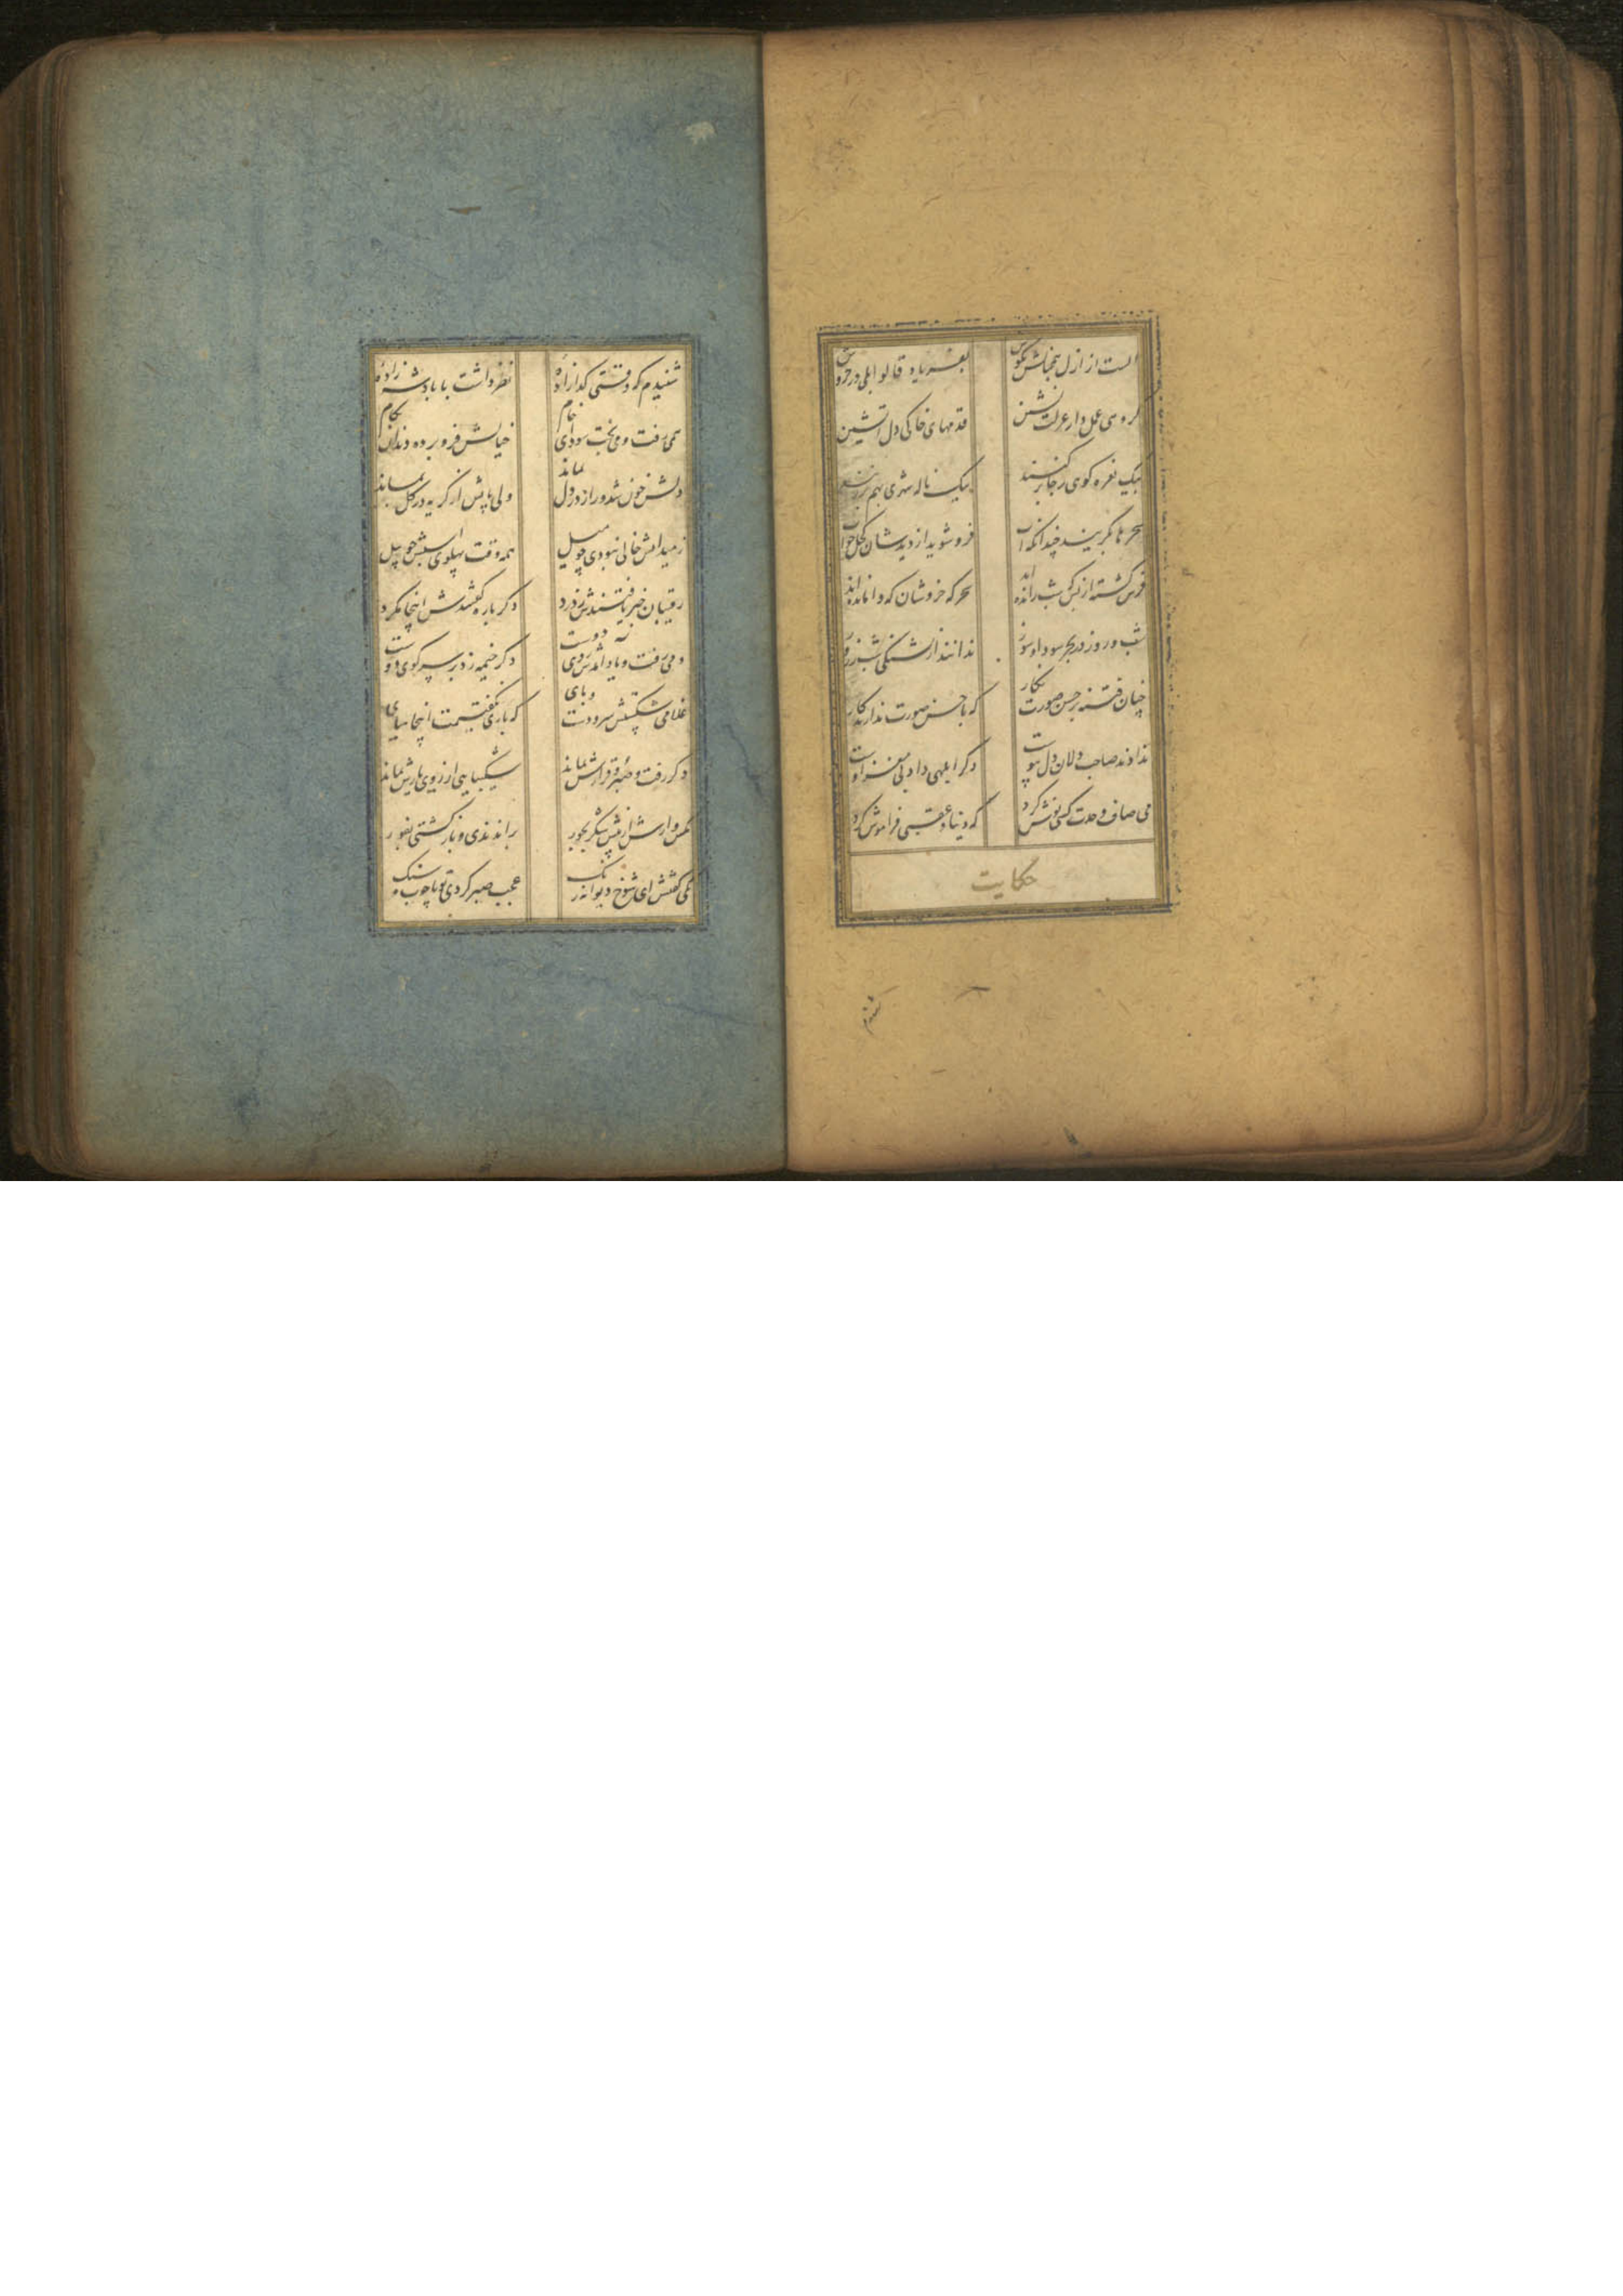 الست از ازل همچنانش بگوش بفریاد قالوا بلی در خروش
گروهی عمل دار عزلت نشین قدمهای خاکی دل آتشین
بیک نعره کوهی ز جا بر کنند بیک ناله شهری بهم بر زنند
سحرها بگریند چندانکه آب فرو شوید از دیدشان کحل خواب
فرس کشته از بس شب رانده اند سحرکه خروشان که وامانده اند
شب و روز در بحر سودا و سوز ندانند ز آشفتگی شب ز روز
چنان فتنه بر حسن صورت نکار که با حسن صورت ندارند کار
ندادند صاحب دلان دل بپوست دکر ابلهی داد بی مغز اوست
می صاف وحدت کسی نوش کرد که دنیا و عقبی فراموش کرد
حکایت
شنیدم
شنیدم که وقتی کدازاده نظر داشت با پادشه زاده
همی رفت و می پخت سودای خام خیالش فرو برده دندان بکام
دلش خون شد و راز در دل بماند ولی پایش از کریه در کل بماند
ز میدانش خالی نبودی چو میل همه وقت پهلوی اسبش چو پیل
رقیبان خبر یافتندش ز درد دکر باره کفتندش اینجا مکرد
دمی رفت و یاد آمدش روی دوست دکر خیمه زد بر سر کوی دوست
غلامی شکستش سر و دست و پای که باری نکفتیمت اینجا میای
دکر رفت و صبر و قرارش نماند شکیبایی از روی یارش نماند
مکس وارش از پیش شکر بجور براندندی و بازکشتی بفور
یکی کفتش ای شوخ دیوانه رنک عجب صبر کردی تو با چوب و سنک